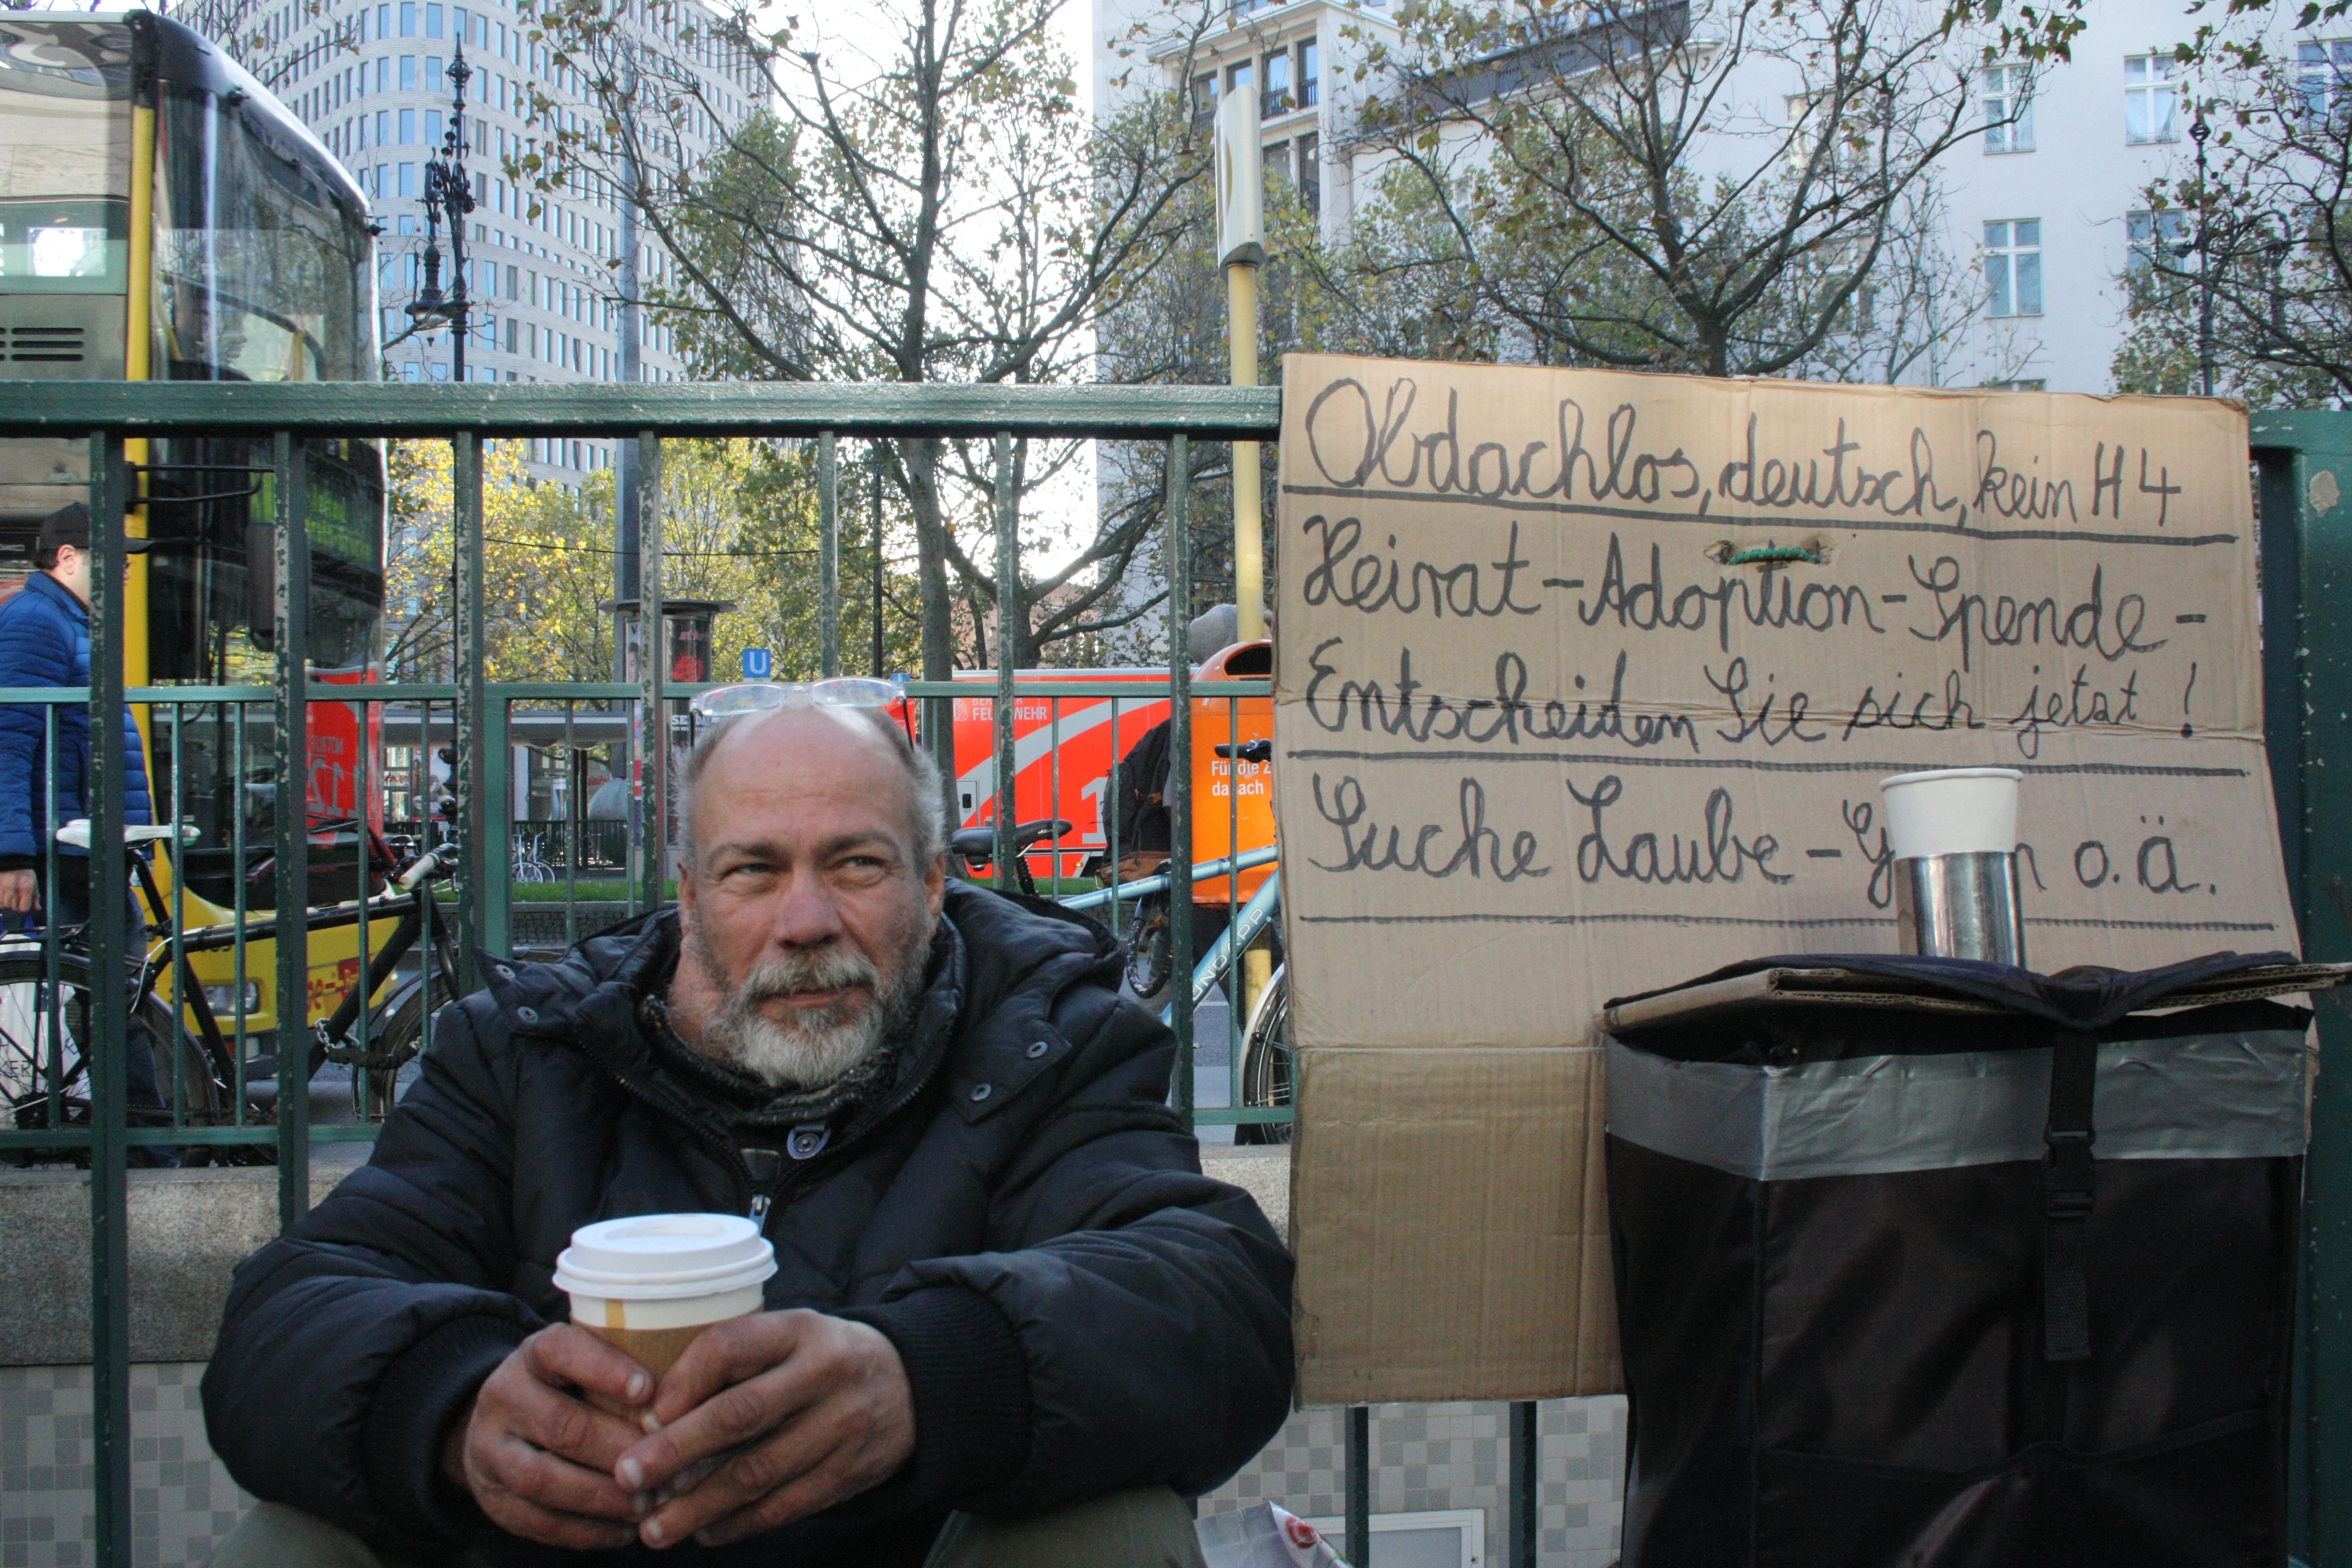 Obdachlos, deutsch, kein H4
Heirat-Adoption-Spende-
Entscheiden Sie sich jetzt!
Suche Laube - o.ä.
U
FEUERWEHR
Für die Z
danach